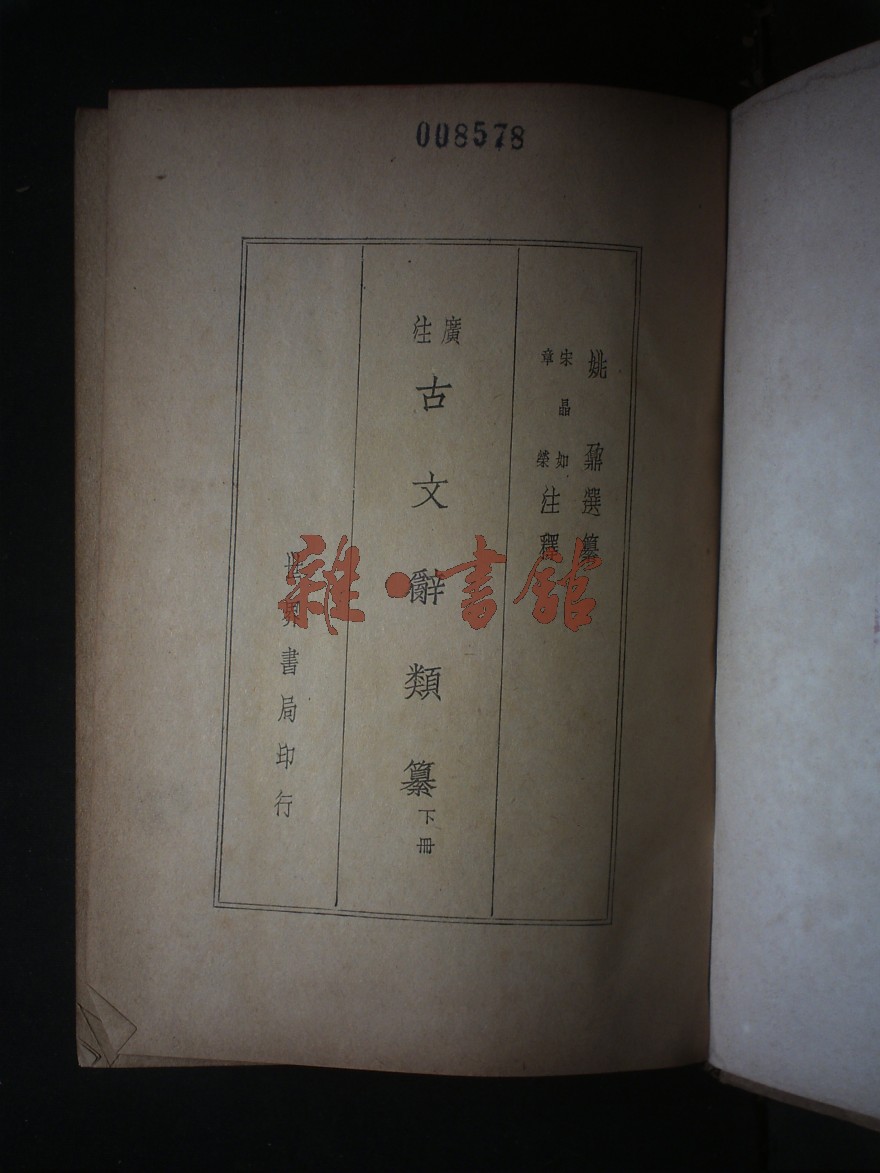 008578
姚鼐選纂
宋晶如
章榮
注釋
廣注
古文辭類纂下冊
世界書局印行
雜·書館